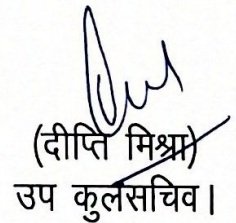 (दीप्ति मिश्रा)
उप कुलसचिव।